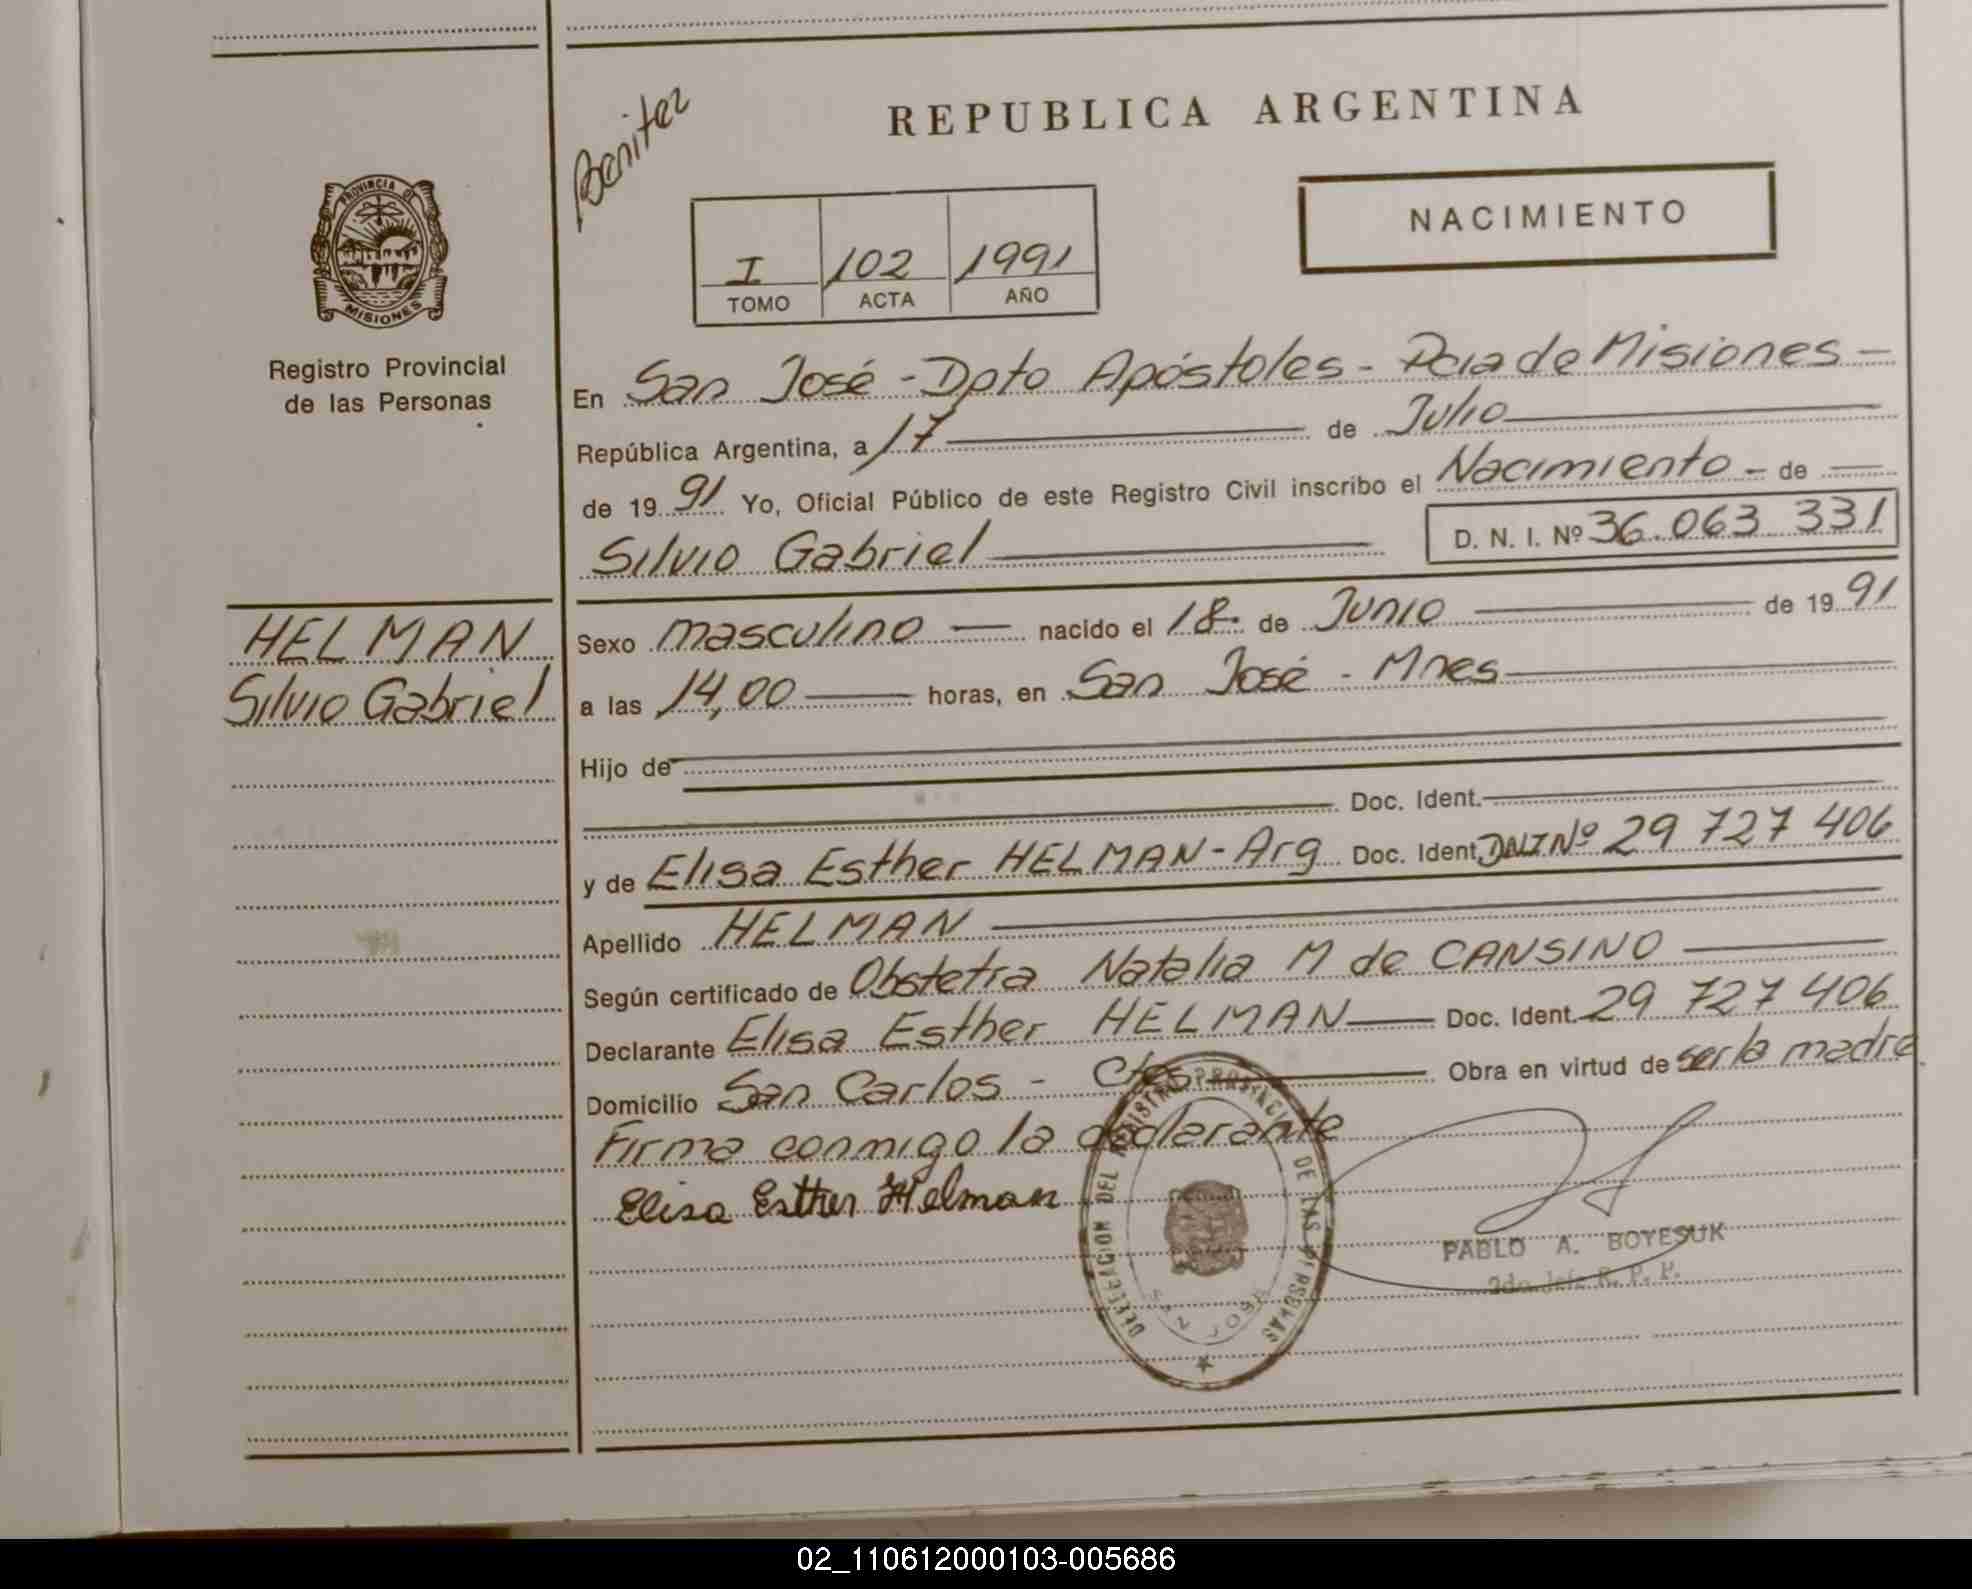 Benitez
REPUBLICA ARGENTINA
NACIMIENTO
I 102 1991
TOMO ACTA AÑO
PROVINCIA DE MISIONES
Registro Provincial
de las Personas
En San José - Dpto Apóstoles - Pcia de Misiones -
República Argentina, a 17 de Julio
de 1991 Yo, Oficial Público de este Registro Civil inscribo el Nacimiento - de
Silvio Gabriel D. N. I. Nº 36.063 331
HELMAN
Silvio Gabriel
Sexo masculino nacido el 18. de Junio de 1991
a las 14,00 horas, en San José - Mnes
Hijo de
Doc. Ident.
y de Elisa Esther HELMAN - Arg Doc. Ident. DNI Nº 29 727 406
Apellido HELMAN
Según certificado de Obstetra Natalia M de CANSINO
Declarante Elisa Esther HELMAN Doc. Ident. 29 727 406
Domicilio San Carlos - Ctes Obra en virtud de ser la madre
Firma conmigo la declarante
Elisa Esther Helman
DELEGACION DEL REGISTRO PROVINCIAL DE LAS PERSONAS
SAN JOSE
PABLO A. BOYESUK
2do Jefe R. P. P.
02_110612000103-005686